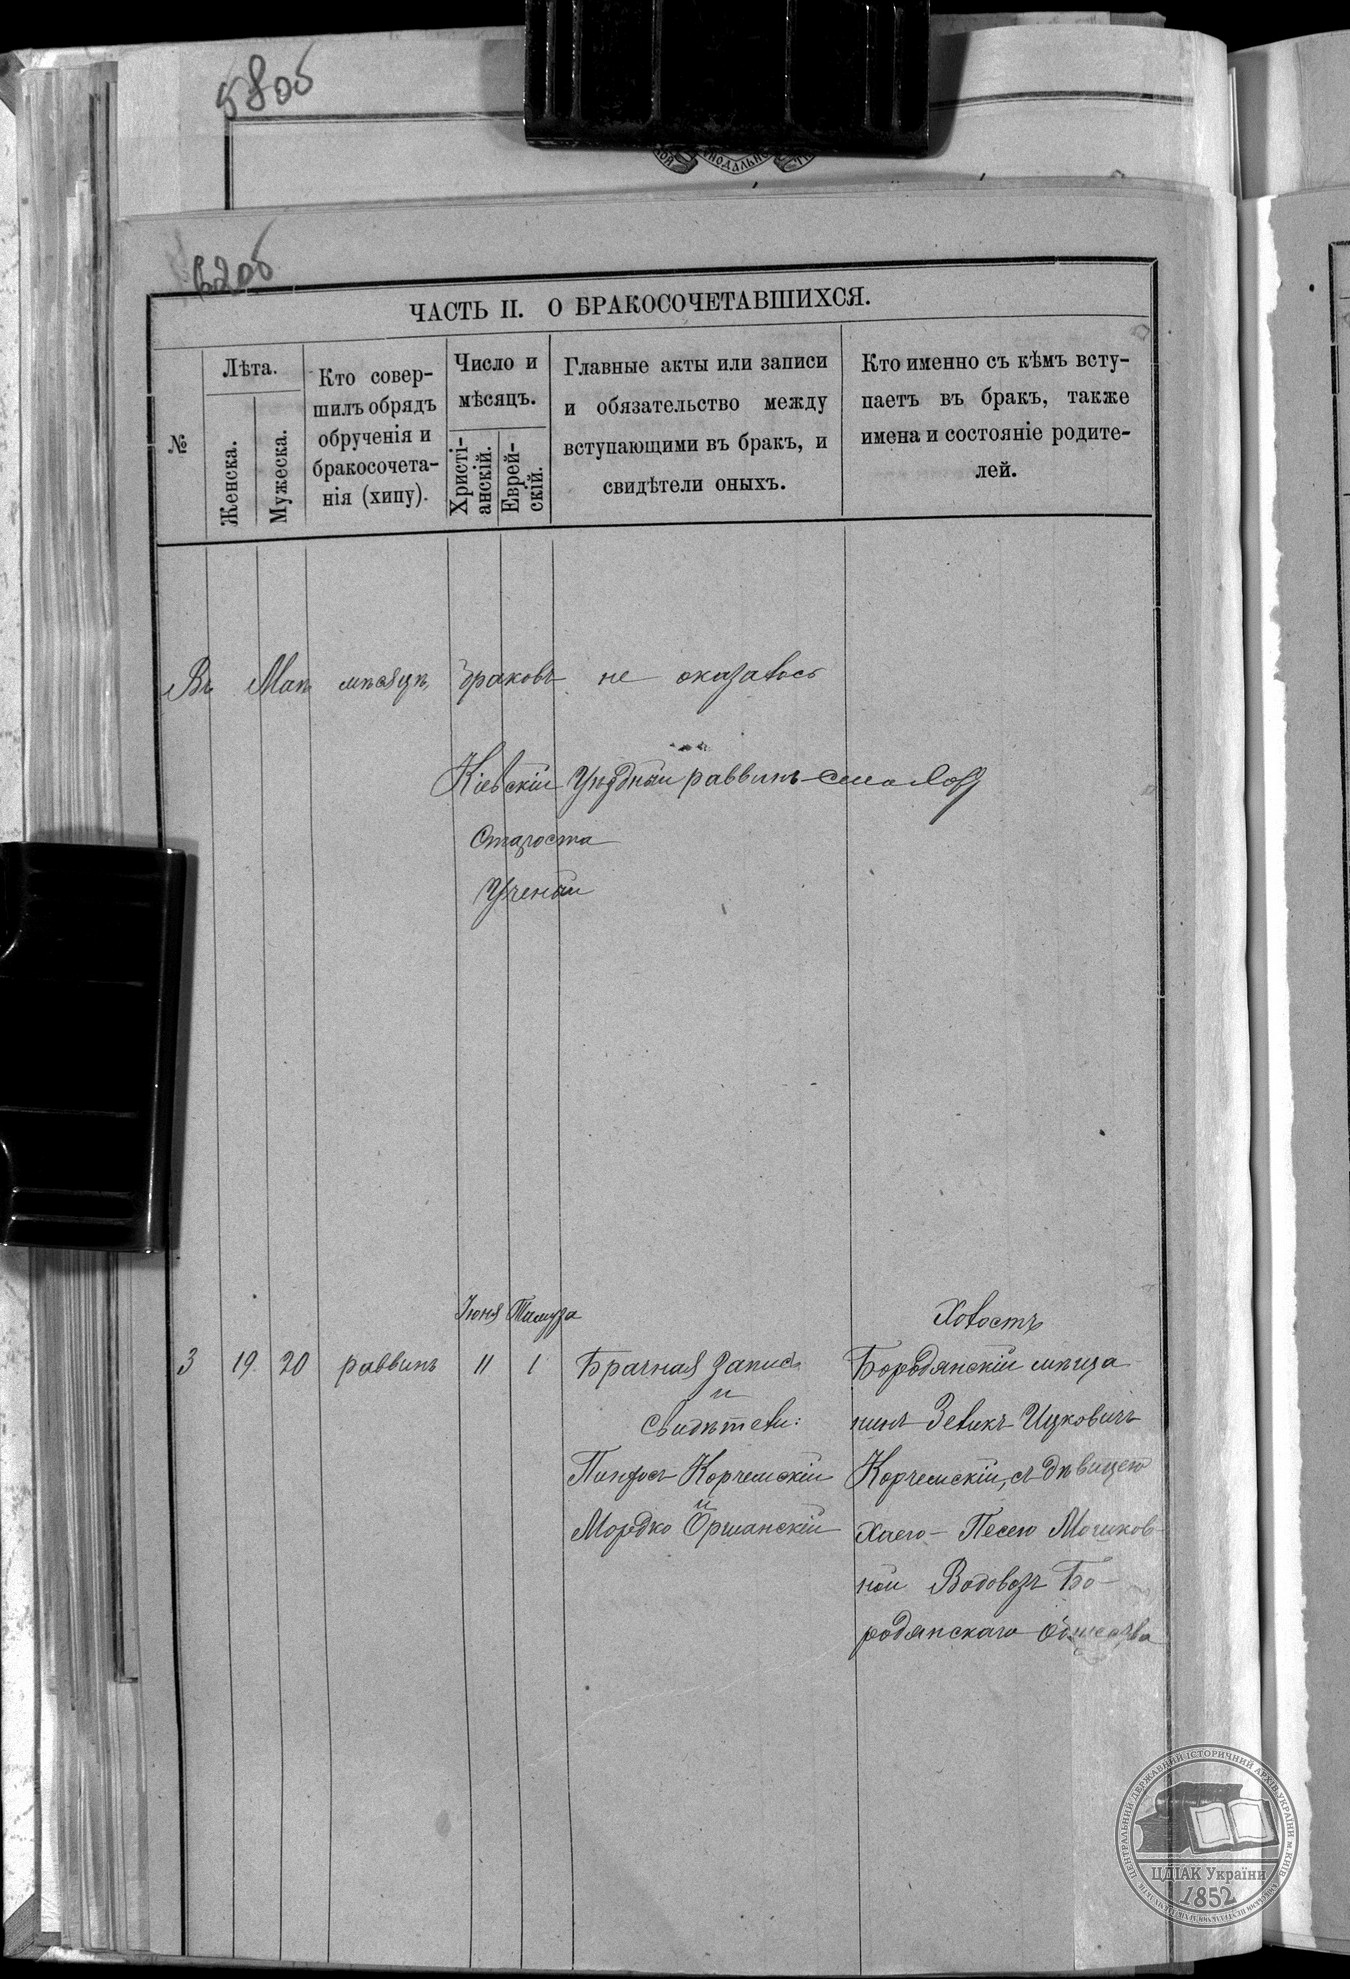 58об
62об
ЧАСТЬ II. О БРАКОСОЧЕТАВШИХСЯ.
№
Лѣта.
Женска.
Мужеска.
Кто совер-
шилъ обрядъ
обрученія и
бракосочета-
нія (хипу).
Число и
мѣсяцъ.
Христі-
анскій.
Еврей-
скій.
Главные акты или записи
и обязательство между
вступающими въ бракъ, и
свидѣтели оныхъ.
Кто именно съ кѣмъ всту-
паетъ въ бракъ, также
имена и состояніе родите-
лей.
Въ Маѣ мѣсяцѣ браковъ не оказалось
Кіевскій Уѣздный раввинъ
Староста
Ученый
Іюня Тамуза
3 19 20 раввинъ 11 1
Брачная запись
и
Свидѣтели:
Пинхосъ Корчемскій
и
Мордко Оршанскій
Холостъ
Бородянскій мѣща-
нинъ Зеликъ Ицковичъ
Корчемскій, съ дѣвицею
Хаею-Песею Мошков-
ной Водовозъ Бо-
родянскаго общества
ЦЕНТРАЛЬНИЙ ДЕРЖАВНИЙ ІСТОРИЧНИЙ АРХІВ УКРАЇНИ м.КИЇВ
ЦДІАК України
1852